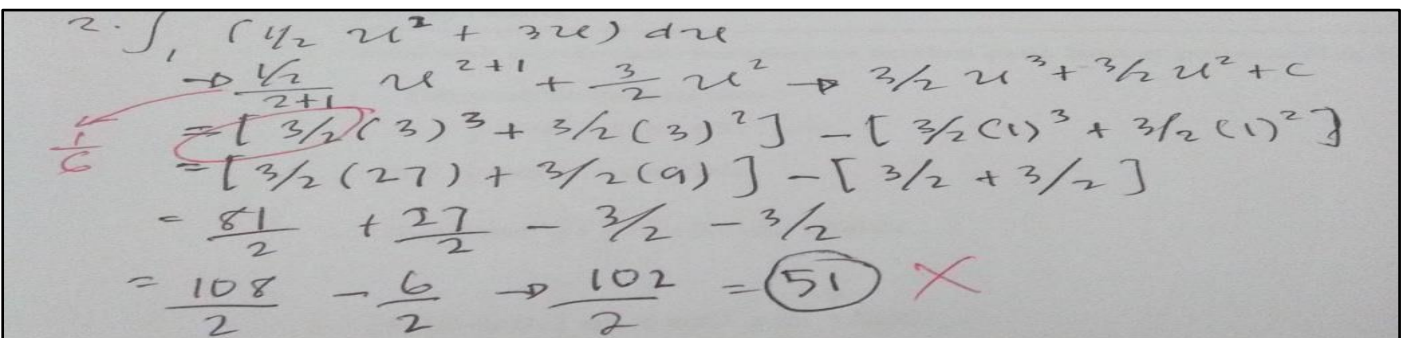 2. ∫₁ (1/2 x² + 3x) dx
→ (1/2)/(2+1) x²⁺¹ + 3/2 x² → 3/2 x³ + 3/2 x² + C
1/6
= [3/2 (3)³ + 3/2 (3)²] - [3/2 (1)³ + 3/2 (1)²]
= [3/2 (27) + 3/2 (9)] - [3/2 + 3/2]
= 81/2 + 27/2 - 3/2 - 3/2
= 108/2 - 6/2 → 102/2 = 51 ×